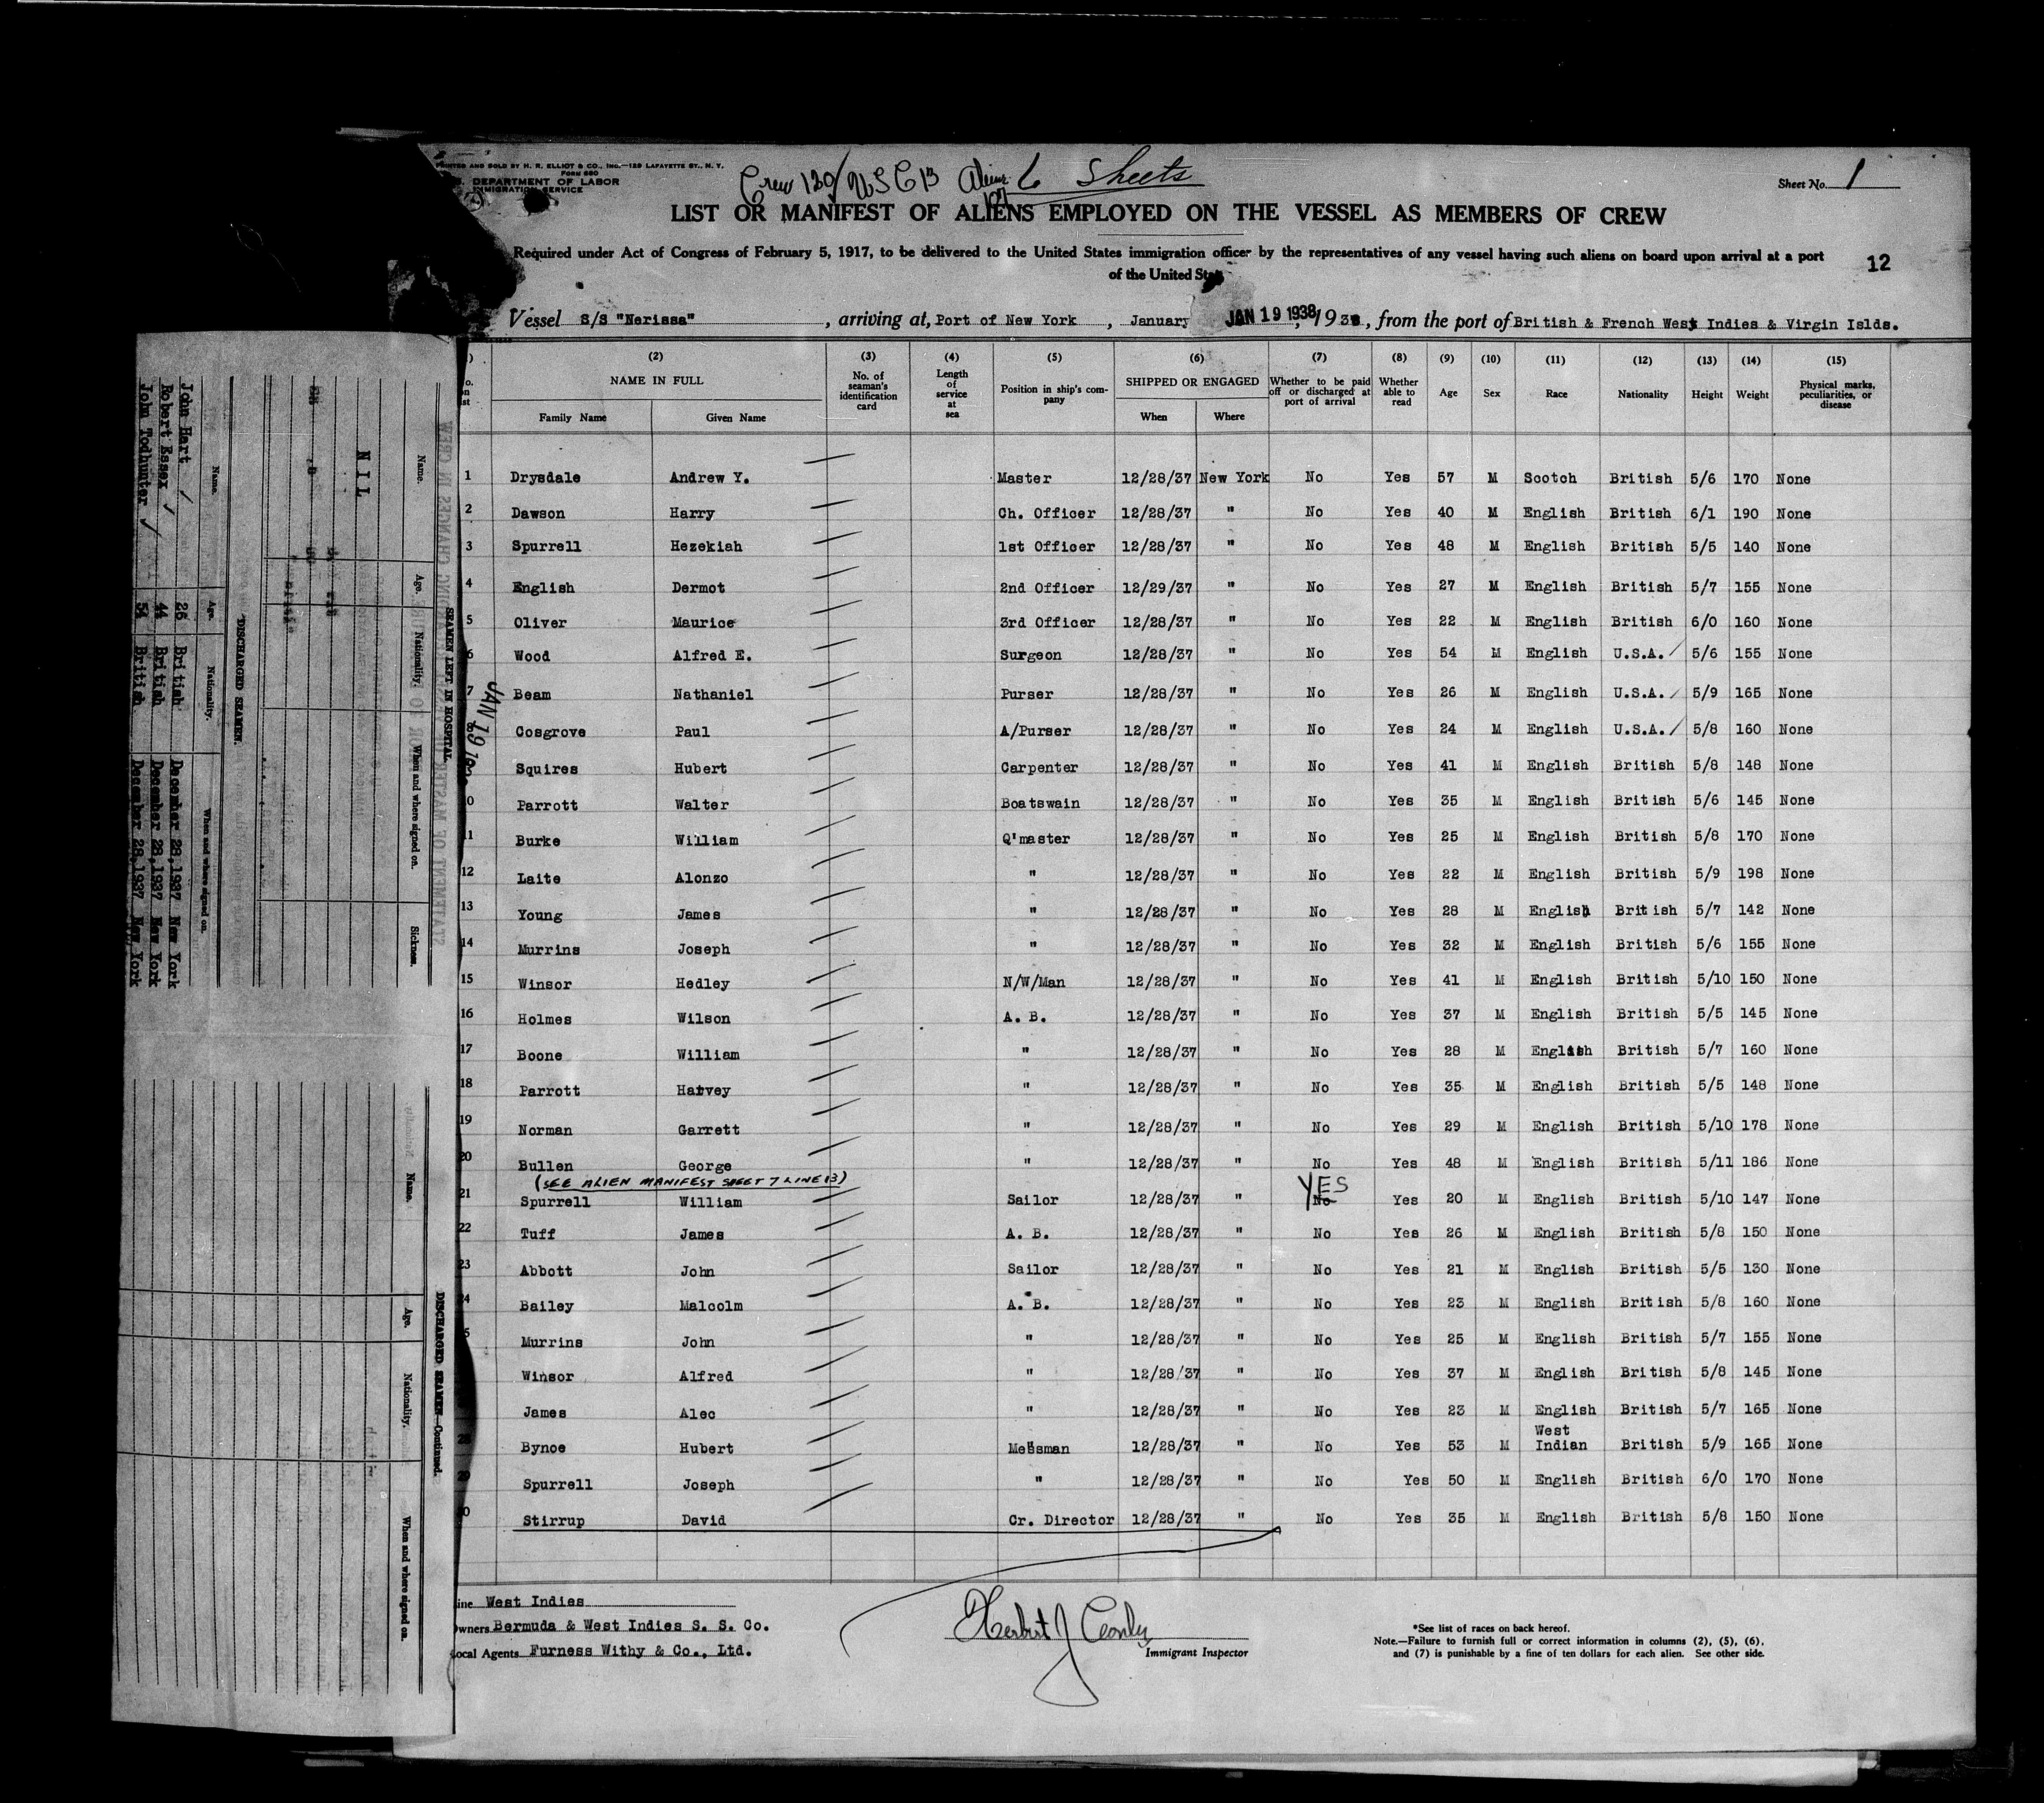 PRINTED AND SOLD BY H. R. ELLIOT & CO., INC.—129 LAFAYETTE ST., N. Y.
FORM 680
DEPARTMENT OF LABOR
IMMIGRATION SERVICE
Crew 120/ USC 13 Aliens 107 6 Sheets
Sheet No. 1
LIST OR MANIFEST OF ALIENS EMPLOYED ON THE VESSEL AS MEMBERS OF CREW
Required under Act of Congress of February 5, 1917, to be delivered to the United States immigration officer by the representatives of any vessel having such aliens on board upon arrival at a port
of the United
12
Vessel S/S "Nerissa", arriving at, Port of New York, January JAN 19 1938, 193, from the port of British & French West Indies & Virgin Islds.
(2) (3) (4) (5) (6) (7) (8) (9) (10) (11) (12) (13) (14) (15)
NAME IN FULL | No. of seaman's identification card | Length of service at sea | Position in ship's company | SHIPPED OR ENGAGED | Whether to be paid off or discharged at port of arrival | Whether able to read | Age | Sex | Race | Nationality | Height | Weight | Physical marks, peculiarities, or disease
Family Name | Given Name | When | Where
1 Drysdale Andrew Y. Master 12/28/37 New York No Yes 57 M Scotch British 5/6 170 None
2 Dawson Harry Ch. Officer 12/28/37 " No Yes 40 M English British 6/1 190 None
3 Spurrell Hezekiah 1st Officer 12/28/37 " No Yes 48 M English British 5/5 140 None
4 English Dermot 2nd Officer 12/29/37 " No Yes 27 M English British 5/7 155 None
5 Oliver Maurice 3rd Officer 12/28/37 " No Yes 22 M English British 6/0 160 None
6 Wood Alfred E. Surgeon 12/28/37 " No Yes 54 M English U.S.A. 5/6 155 None
7 Beam Nathaniel Purser 12/28/37 " No Yes 26 M English U.S.A. 5/9 165 None
8 Cosgrove Paul A/Purser 12/28/37 " No Yes 24 M English U.S.A. 5/8 160 None
Squires Hubert Carpenter 12/28/37 " No Yes 41 M English British 5/8 148 None
0 Parrott Walter Boatswain 12/28/37 " No Yes 35 M English British 5/6 145 None
11 Burke William Q'master 12/28/37 " No Yes 25 M English British 5/8 170 None
12 Laite Alonzo " 12/28/37 " No Yes 22 M English British 5/9 198 None
13 Young James " 12/28/37 " No Yes 28 M English British 5/7 142 None
14 Murrins Joseph " 12/28/37 " No Yes 32 M English British 5/6 155 None
15 Winsor Hedley N/W/Man 12/28/37 " No Yes 41 M English British 5/10 150 None
16 Holmes Wilson A. B. 12/28/37 " No Yes 37 M English British 5/5 145 None
17 Boone William " 12/28/37 " No Yes 28 M English British 5/7 160 None
18 Parrott Harvey " 12/28/37 " No Yes 35 M English British 5/5 148 None
19 Norman Garrett " 12/28/37 " No Yes 29 M English British 5/10 178 None
20 Bullen George " 12/28/37 " No Yes 48 M English British 5/11 186 None
(SEE ALIEN MANIFEST SHEET 7 LINE 13)
21 Spurrell William Sailor 12/28/37 " No YES Yes 20 M English British 5/10 147 None
22 Tuff James A. B. 12/28/37 " No Yes 26 M English British 5/8 150 None
23 Abbott John Sailor 12/28/37 " No Yes 21 M English British 5/5 130 None
24 Bailey Malcolm A. B. 12/28/37 " No Yes 23 M English British 5/8 160 None
5 Murrins John " 12/28/37 " No Yes 25 M English British 5/7 155 None
Winsor Alfred " 12/28/37 " No Yes 37 M English British 5/8 145 None
James Alec " 12/28/37 " No Yes 23 M English British 5/7 165 None
28 Bynoe Hubert Messman 12/28/37 " No Yes 53 M West Indian British 5/9 165 None
29 Spurrell Joseph " 12/28/37 " No Yes 50 M English British 6/0 170 None
0 Stirrup David Cr. Director 12/28/37 " No Yes 35 M English British 5/8 150 None
JAN 19
West Indies
Owners Bermuda & West Indies S. S. Co.
Local Agents Furness Withy & Co., Ltd.
Immigrant Inspector
*See list of races on back hereof.
Note.—Failure to furnish full or correct information in columns (2), (5), (6),
and (7) is punishable by a fine of ten dollars for each alien. See other side.
SEAMEN LEFT IN HOSPITAL
Name. Age. Nationality. When and where signed on. Sickness.
NIL
DISCHARGED SEAMEN.
Name. Age. Nationality. When and where signed on.
John Hart 26 British December 28,1937 New York
Robert Essex 44 British December 28,1937 New York
John Todhunter 54 British December 28,1937 New York
DISCHARGED SEAMEN—Continued.
Name. Age. Nationality. When and where signed on.